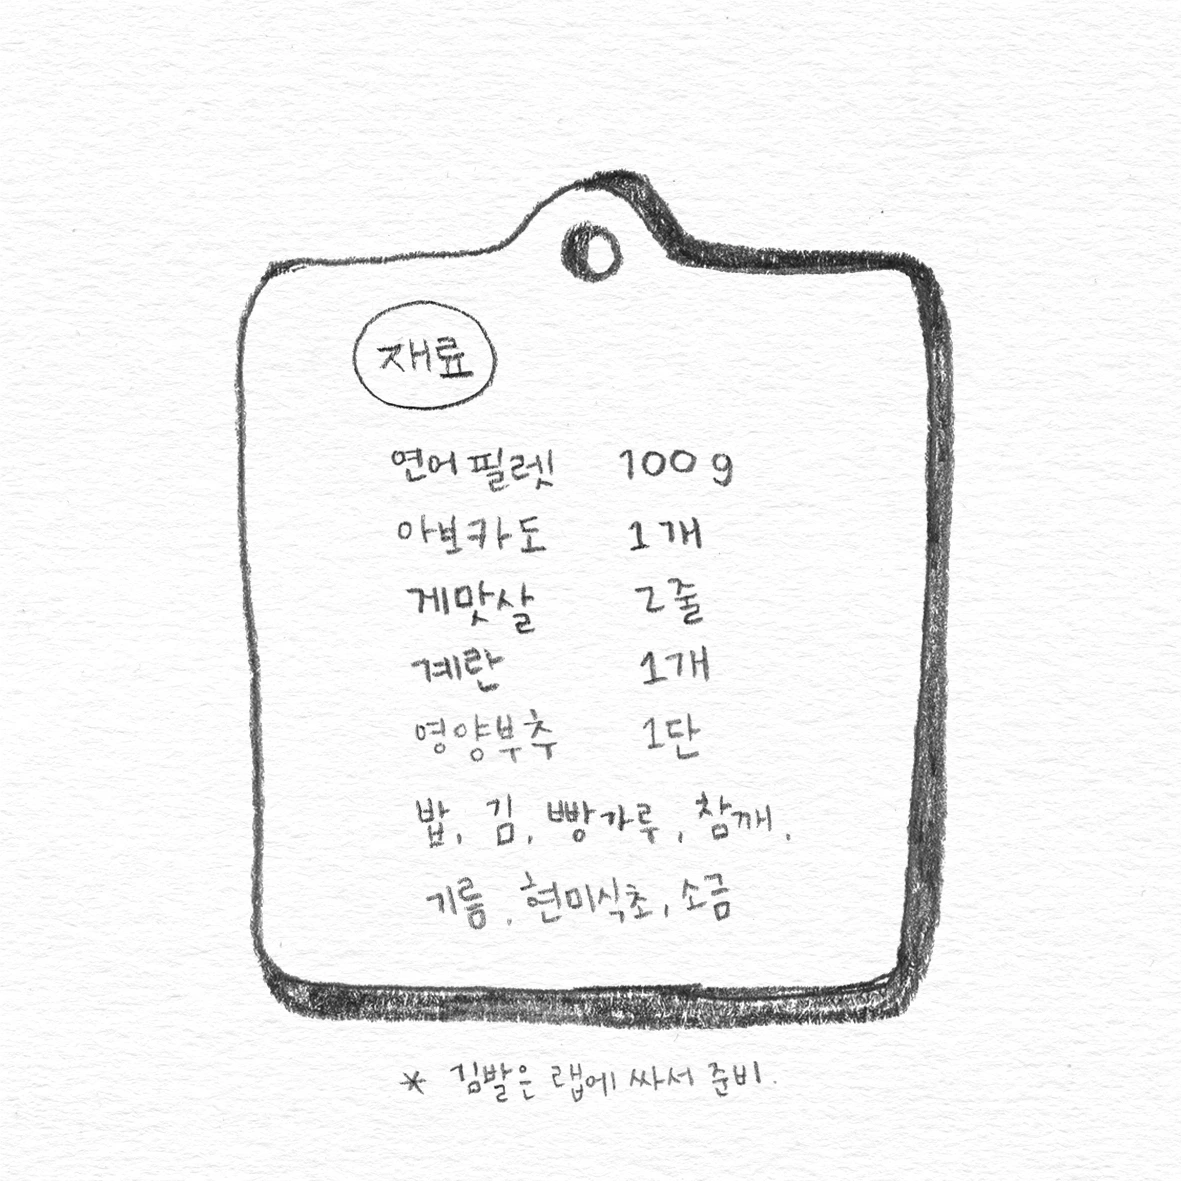 재료
연어필렛 100g
아보카도 1개
게맛살 2줄
계란 1개
영양부추 1단
밥, 김, 빵가루, 참깨,
기름, 현미식초, 소금
* 김발은 랩에 싸서 준비.